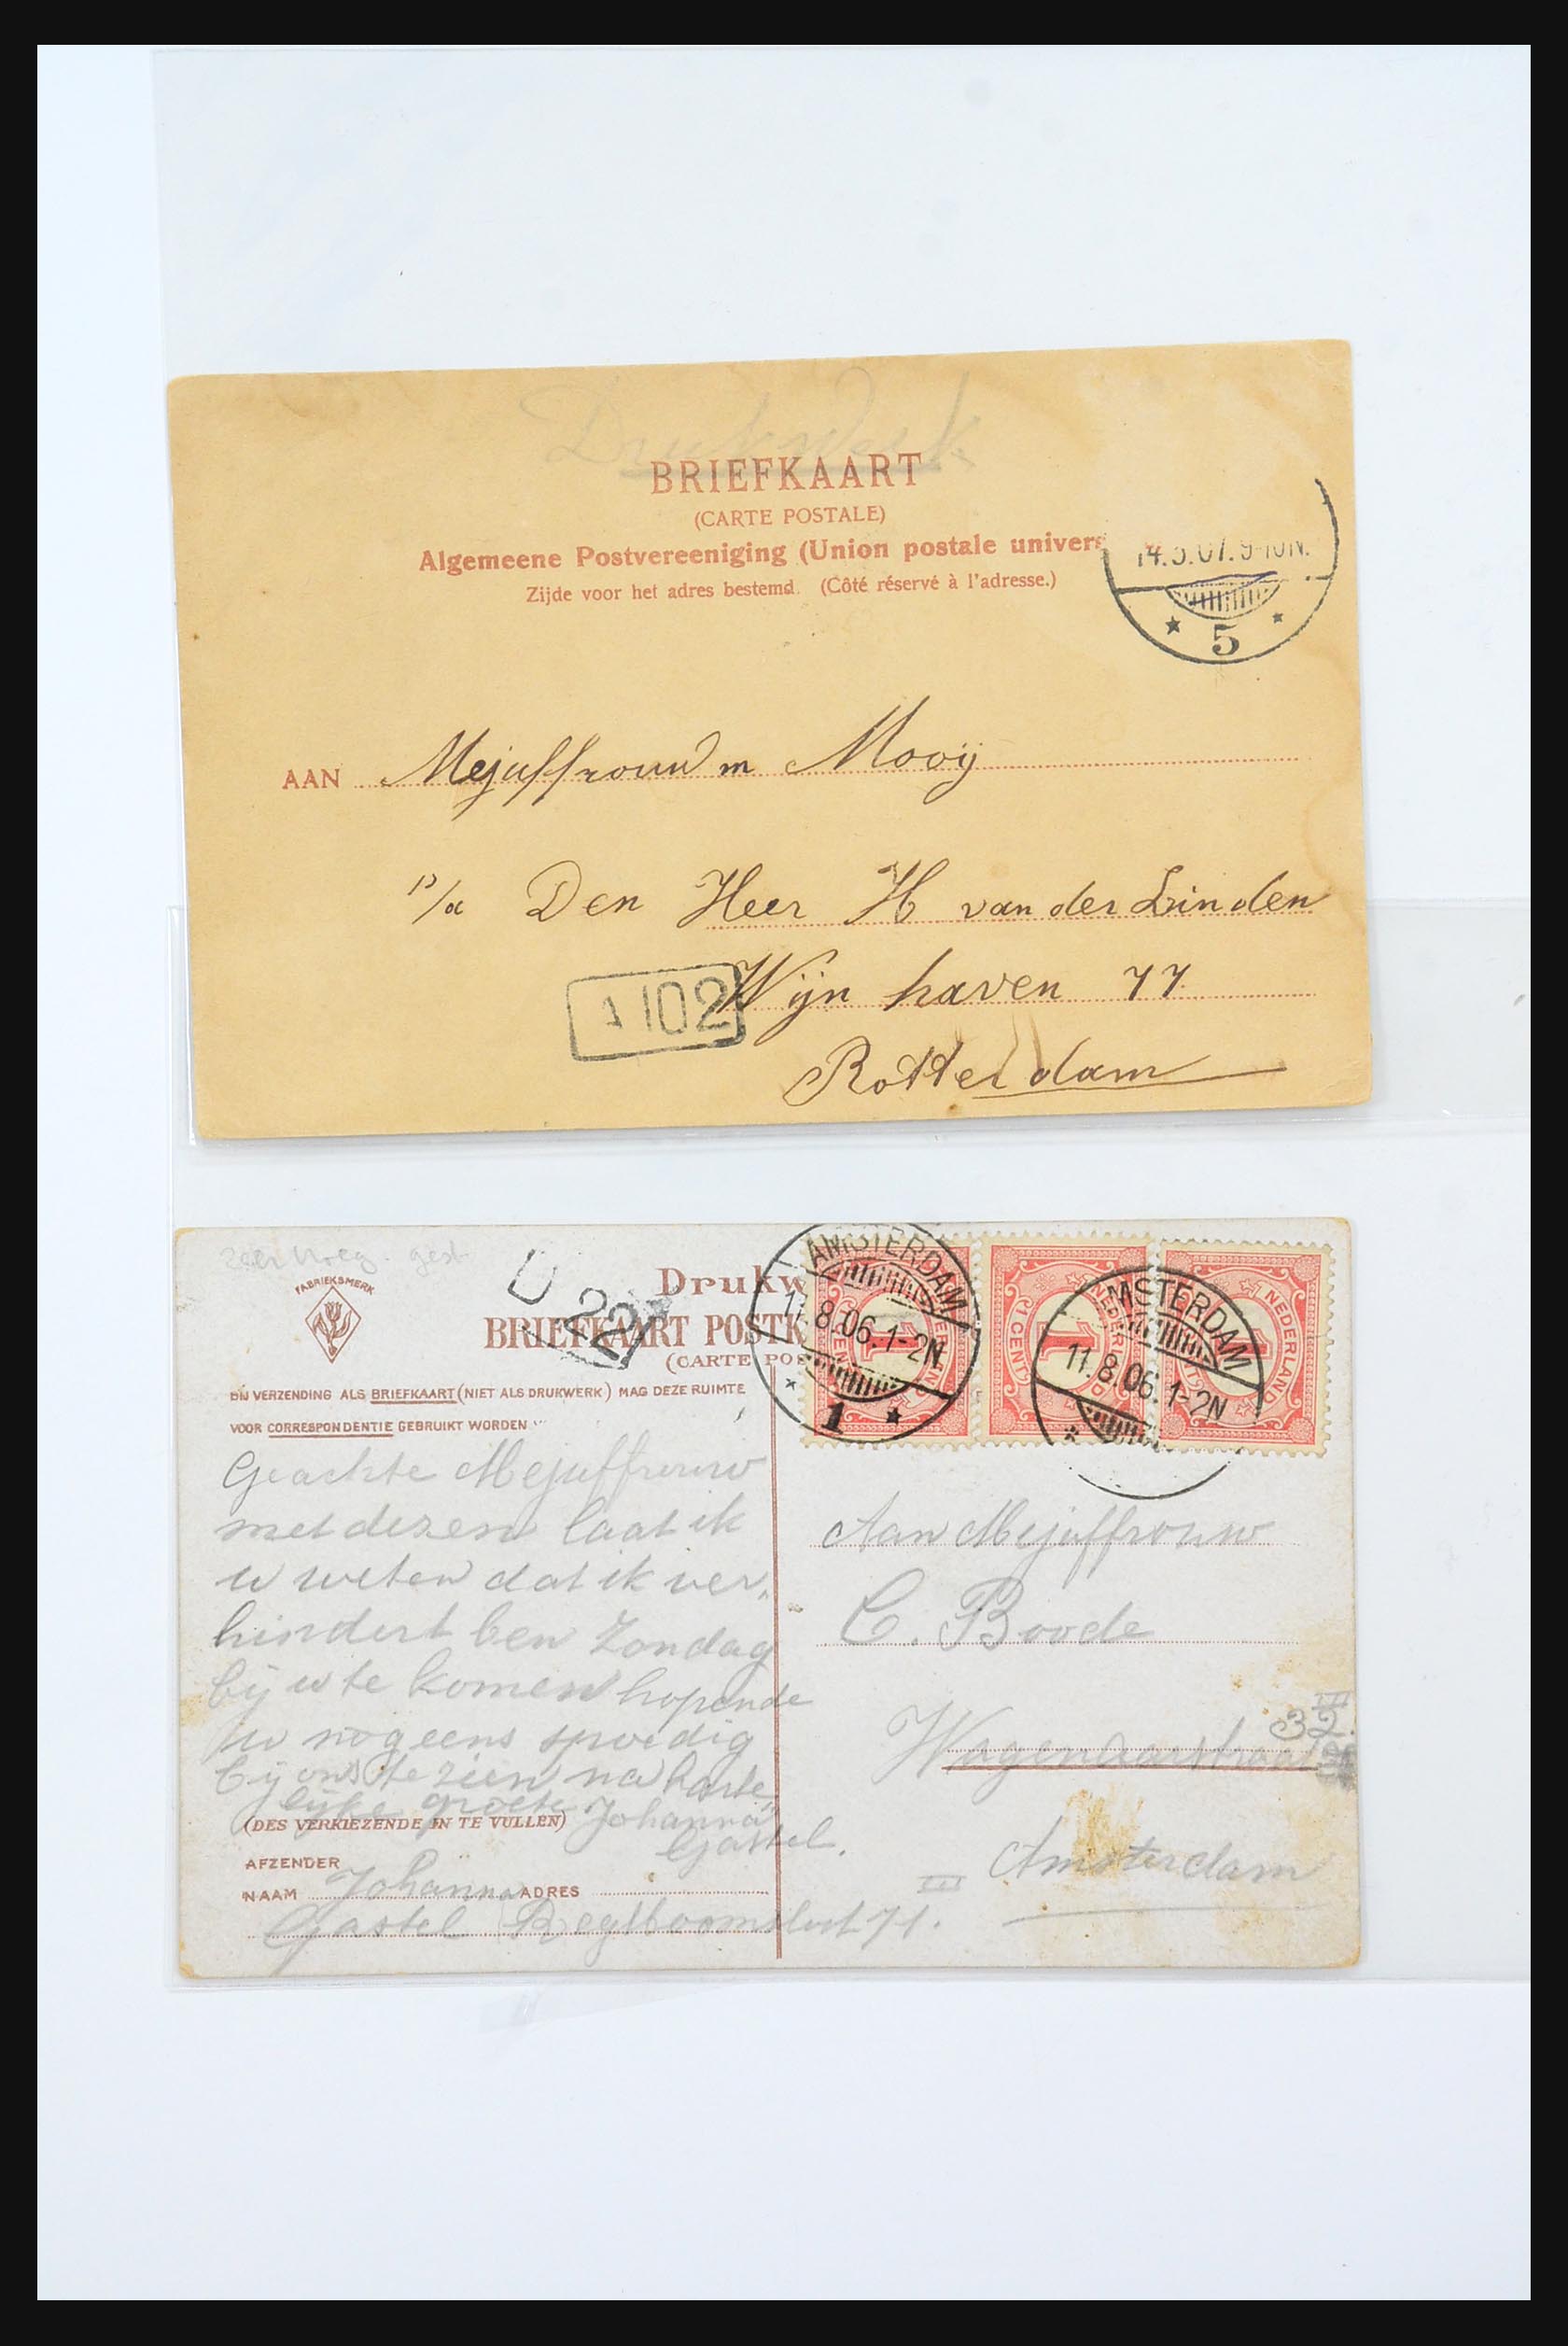 Drukwerk
BRIEFKAART
(CARTE POSTALE)
Algemeene Postvereeniging (Union postale univers
Zijde voor het adres bestemd. (Côté réservé à l'adresse.)
14.5.07. 9-10N.
5
AAN Mejuffrouw m Mooij
p/a Den Heer H van der Linden
1102
Wijn haven 77
Rotterdam
zeer vroeg. gest.
FABRIEKSMERK
U 22
Drukw
BRIEFKAART POSTK
(CARTE POS
BIJ VERZENDING ALS BRIEFKAART (NIET ALS DRUKWERK) MAG DEZE RUIMTE
VOOR CORRESPONDENTIE GEBRUIKT WORDEN
AMSTERDAM
11.8.06.1-2N
1
NEDERLAND
1
(1 CENT)
NEDERLAND
1
AMSTERDAM
11.8.06.1-2N
NEDERLAND
Geachte Mejuffrouw
met dezen laat ik
u weten dat ik ver-
hindert ben Zondag
bij u te komen hopende
u nog eens spoedig
bij ons te zien na harte
lijke groete Johanna
Gastel.
(DES VERKIEZENDE IN TE VULLEN)
AFZENDER
NAAM Johanna ADRES
Gastel 71.
III
Aan Mejuffrouw
C. Boode
Wagenaarstraat 32 III
Amsterdam